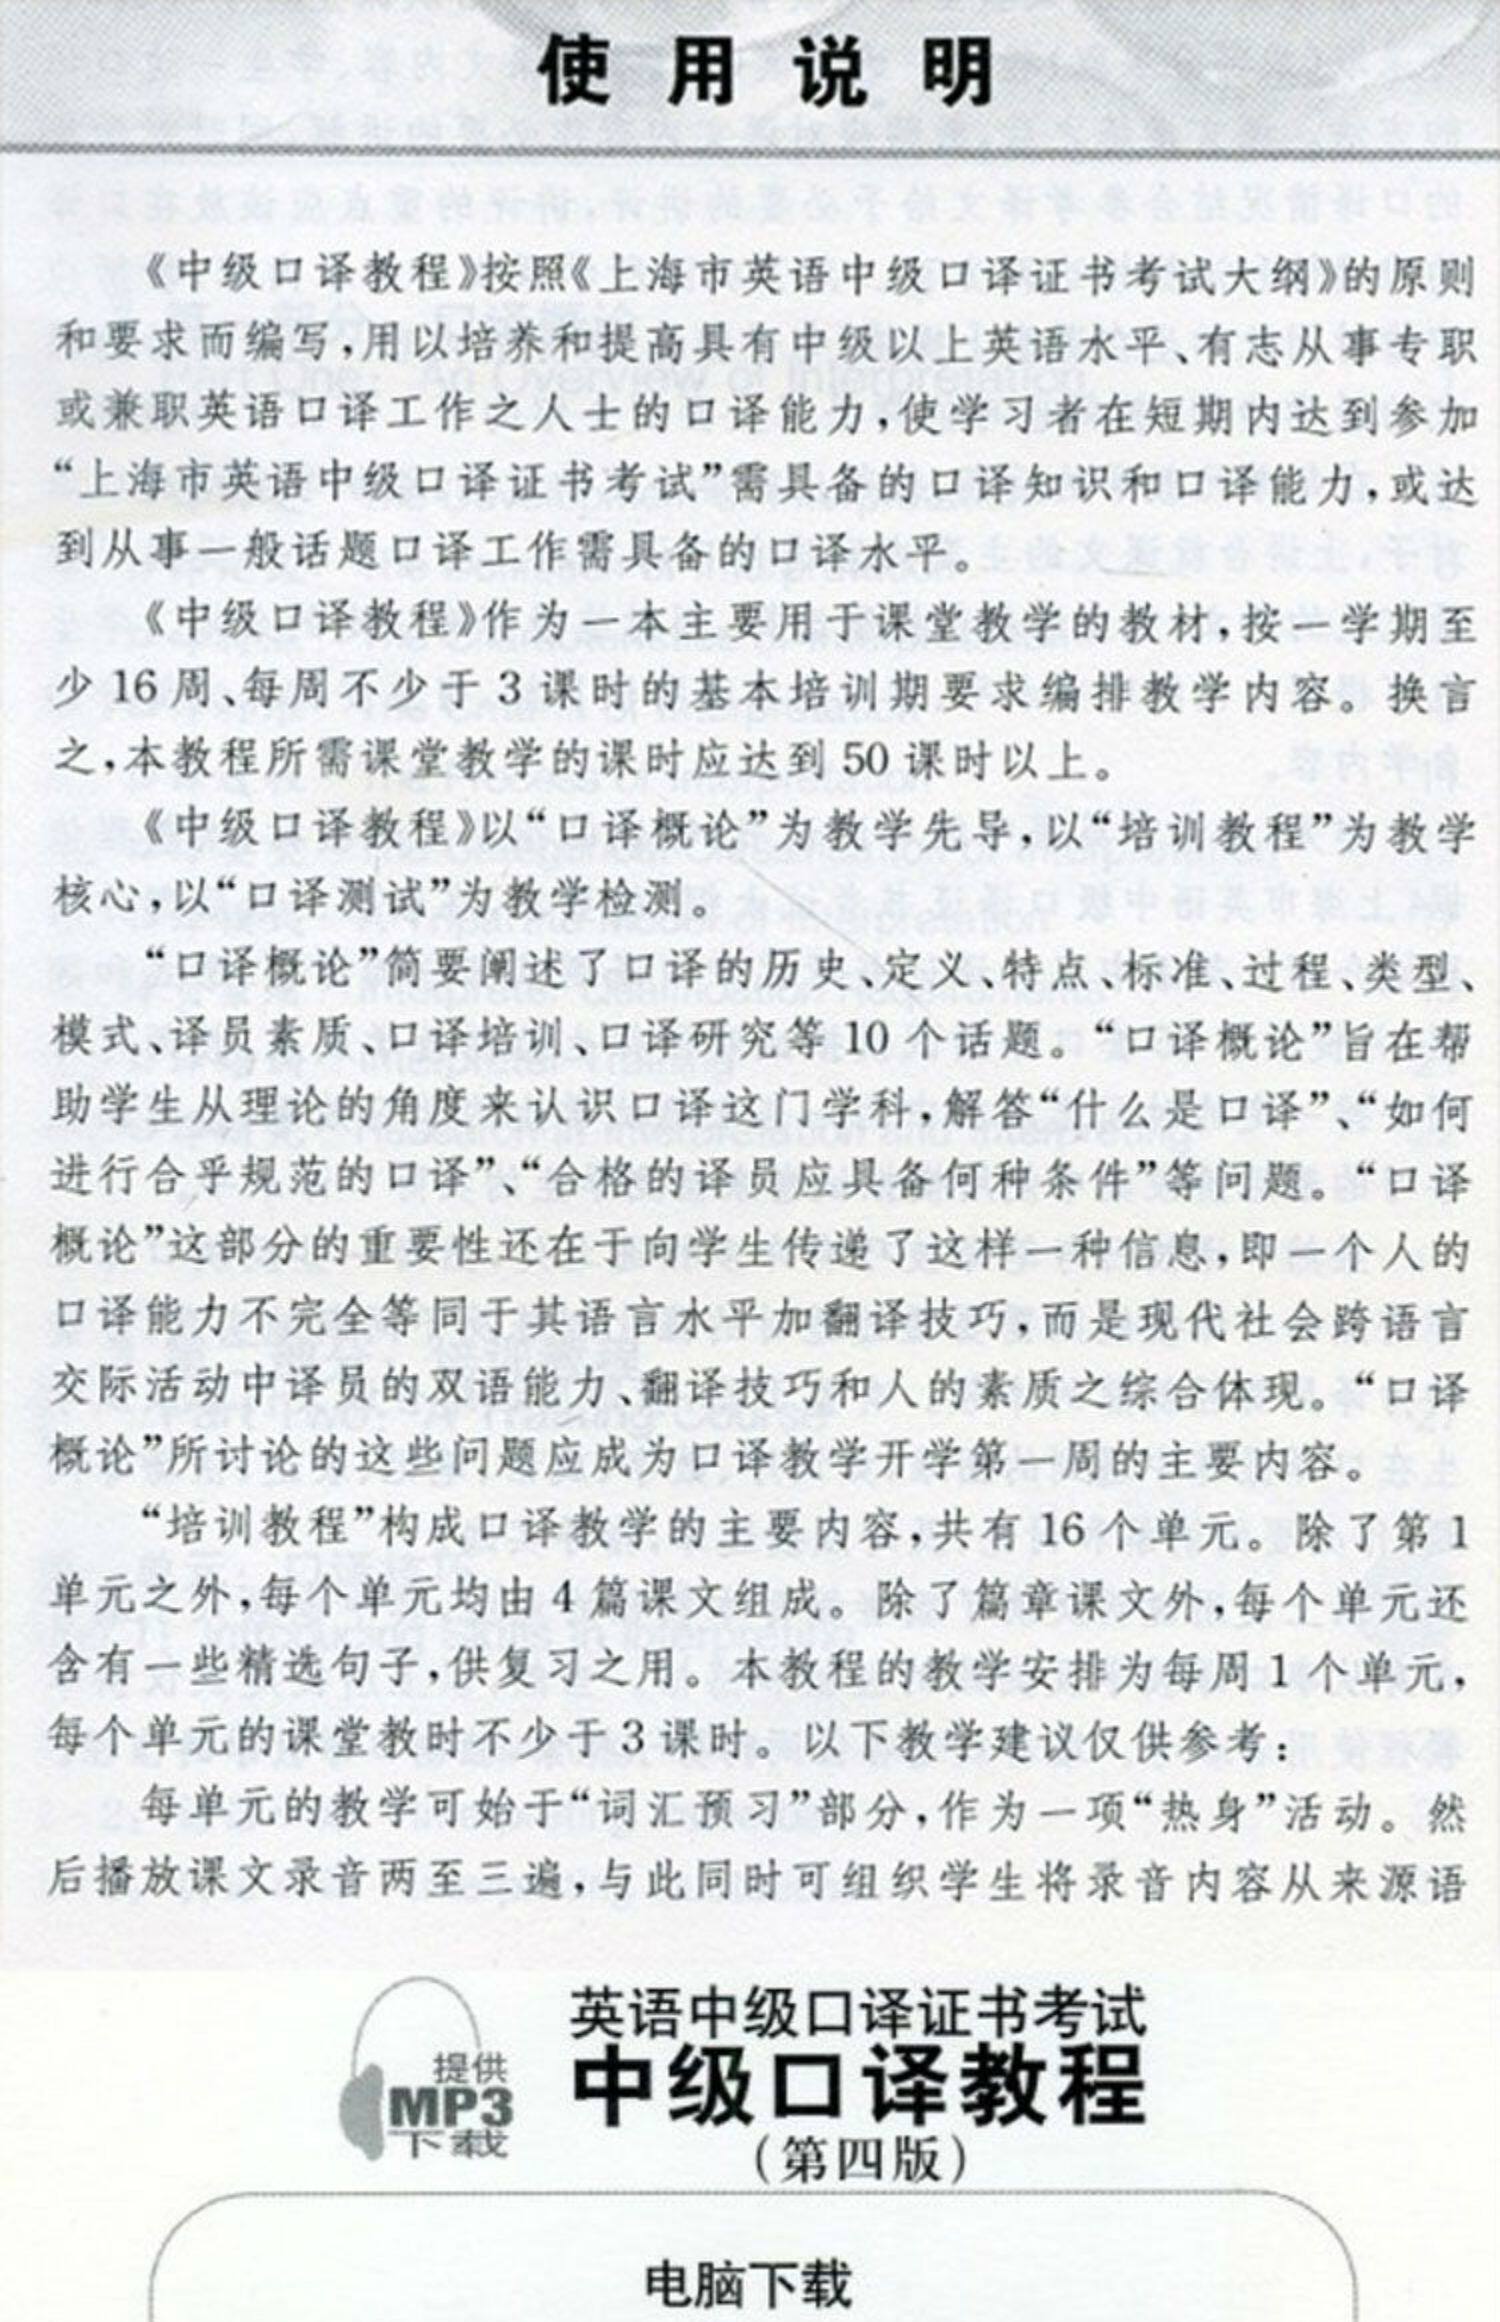 使用说明
《中级口译教程》按照《上海市英语中级口译证书考试大纲》的原则
和要求而编写,用以培养和提高具有中级以上英语水平、有志从事专职
或兼职英语口译工作之人士的口译能力,使学习者在短期内达到参加
“上海市英语中级口译证书考试”需具备的口译知识和口译能力,或达
到从事一般话题口译工作需具备的口译水平。
《中级口译教程》作为一本主要用于课堂教学的教材,按一学期至
少 16 周、每周不少于 3 课时的基本培训期要求编排教学内容。换言
之,本教程所需课堂教学的课时应达到 50 课时以上。
《中级口译教程》以“口译概论”为教学先导,以“培训教程”为教学
核心,以“口译测试”为教学检测。
“口译概论”简要阐述了口译的历史、定义、特点、标准、过程、类型、
模式、译员素质、口译培训、口译研究等 10 个话题。“口译概论”旨在帮
助学生从理论的角度来认识口译这门学科,解答“什么是口译”、“如何
进行合乎规范的口译”、“合格的译员应具备何种条件”等问题。“口译
概论”这部分的重要性还在于向学生传递了这样一种信息,即一个人的
口译能力不完全等同于其语言水平加翻译技巧,而是现代社会跨语言
交际活动中译员的双语能力、翻译技巧和人的素质之综合体现。“口译
概论”所讨论的这些问题应成为口译教学开学第一周的主要内容。
“培训教程”构成口译教学的主要内容,共有 16 个单元。除了第 1
单元之外,每个单元均由 4 篇课文组成。除了篇章课文外,每个单元还
含有一些精选句子,供复习之用。本教程的教学安排为每周 1 个单元,
每个单元的课堂教时不少于 3 课时。以下教学建议仅供参考:
每单元的教学可始于“词汇预习”部分,作为一项“热身”活动。然
后播放课文录音两至三遍,与此同时可组织学生将录音内容从来源语
英语中级口译证书考试
提供
MP3
下载
中级口译教程
(第四版)
电脑下载